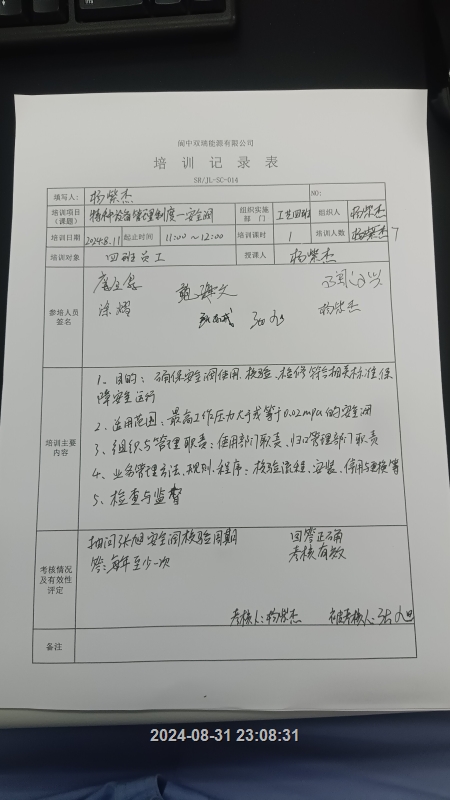 阆中双瑞能源有限公司
培训记录表
SR/JL-SC-014
填写人： 杨崇杰 NO:
培训项目（课题） 特种设备管理制度—安全阀 组织实施部门 工艺四班 组织人 杨崇杰
培训日期 2024.8.11 起止时间 11:00～12:00 培训课时 1 培训人数 7
培训对象 四班员工 授课人 杨崇杰
参培人员签名
杨崇杰
培训主要内容
1、目的：确保安全阀使用、校验、检修符合相关标准,保
障安全运行
2、适用范围：最高工作压力大于或等于0.02mpa的安全阀
3、组织与管理职责：使用部门职责、归口管理部门职责
4、业务管理方法、规则、程序：校验流程、安装、使用与更换等
5、检查与监督
考核情况及有效性评定
抽问张旭安全阀校验周期 回答正确
答：每年至少一次 考核有效
考核人：杨崇杰 被考核人：张旭
备注
2024-08-31 23:08:31